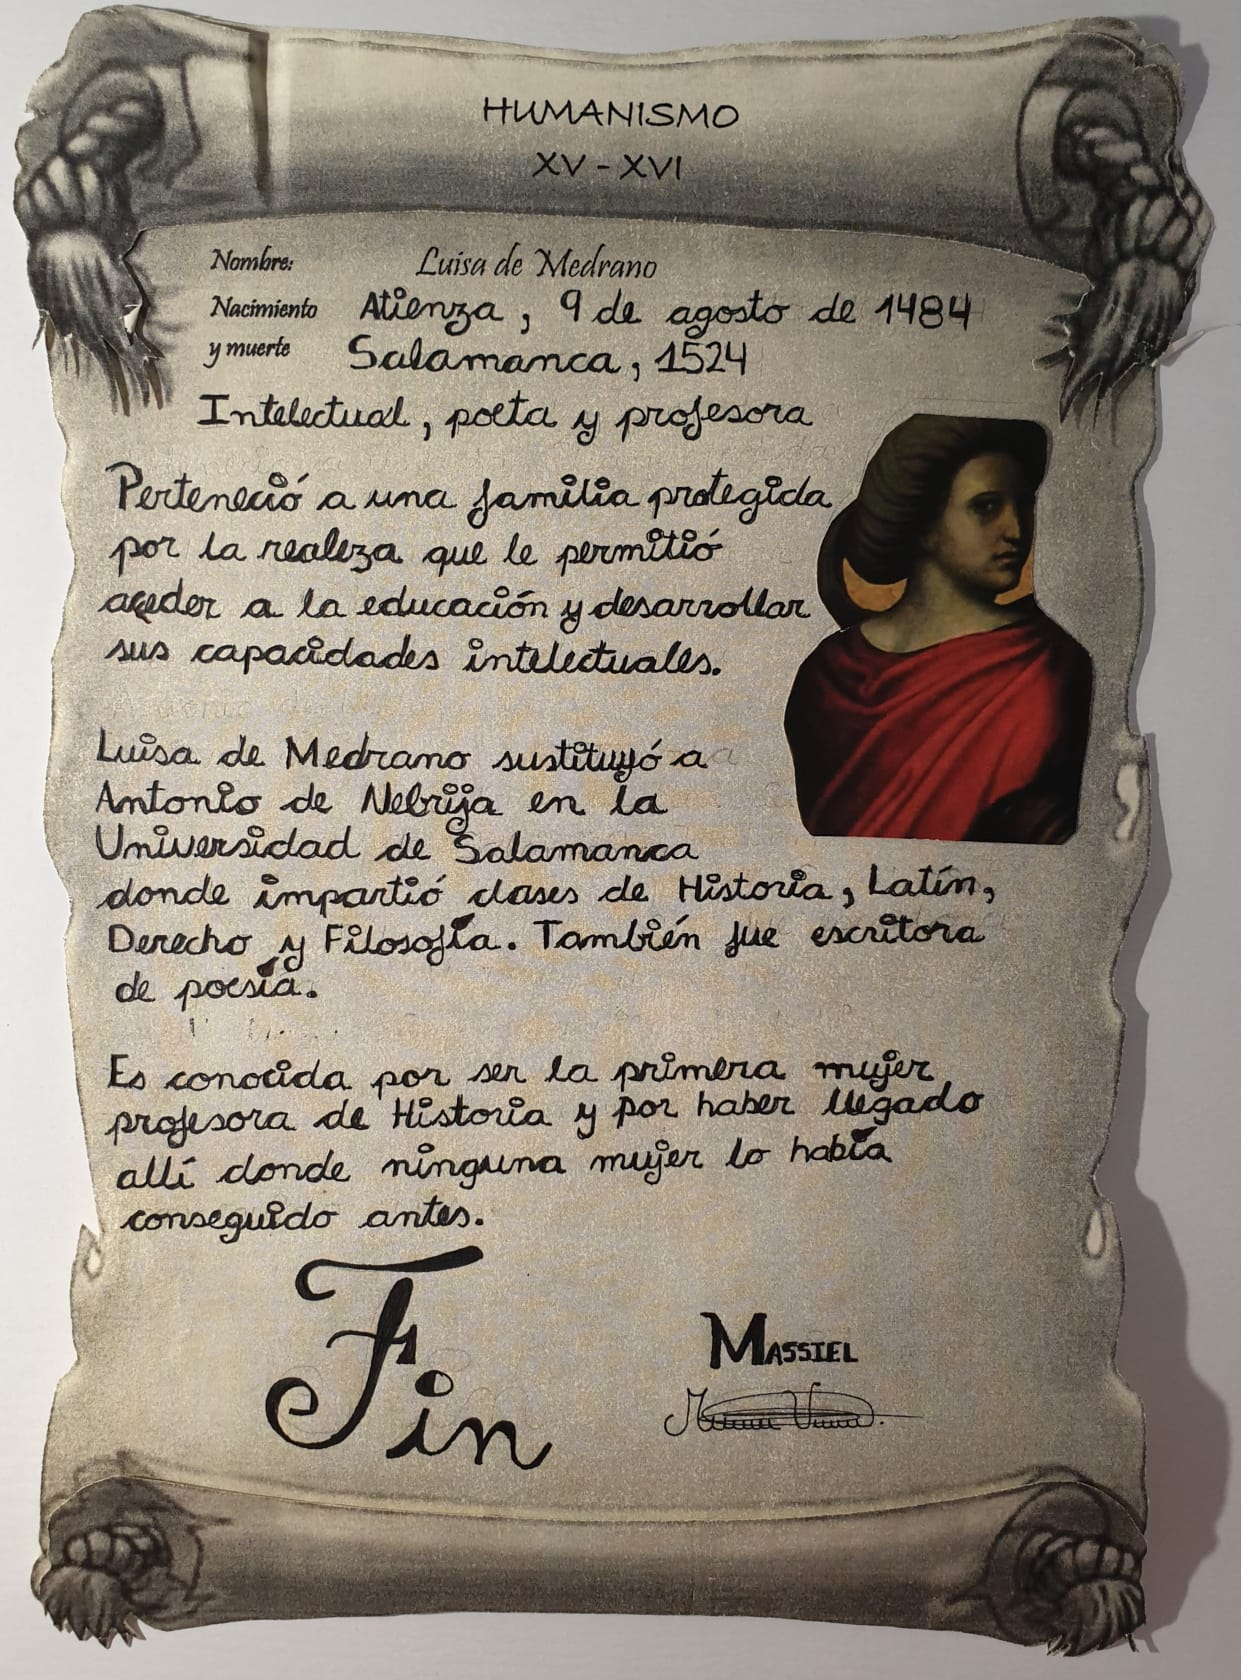 HUMANISMO
XV - XVI
Nombre: Luisa de Medrano
Nacimiento Atienza, 9 de agosto de 1484
y muerte Salamanca, 1524
Intelectual, poeta y profesora
Perteneció a una familia protegida
por la realeza que le permitió
acceder a la educación y desarrollar
sus capacidades intelectuales.
Luisa de Medrano sustituyó a
Antonio de Nebrija en la
Universidad de Salamanca
donde impartió clases de Historia, Latín,
Derecho y Filosofía. También fue escritora
de poesía.
Es conocida por ser la primera mujer
profesora de Historia y por haber llegado
allí donde ninguna mujer lo había
conseguido antes.
Fin
MASSIEL